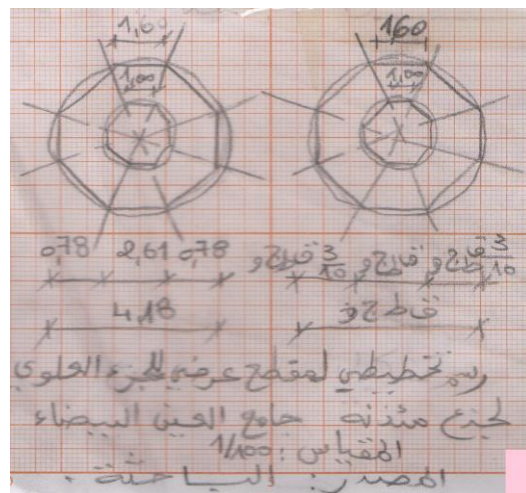 1,60 160
1,00 1,00
0,78 2,61 0,78
4,18
رسم تخطيطي لمقطع عرضي للجزء العلوي
لجذع مئذنة جامع العين البيضاء
المقياس: 1/100
المصدر: الباحثة.